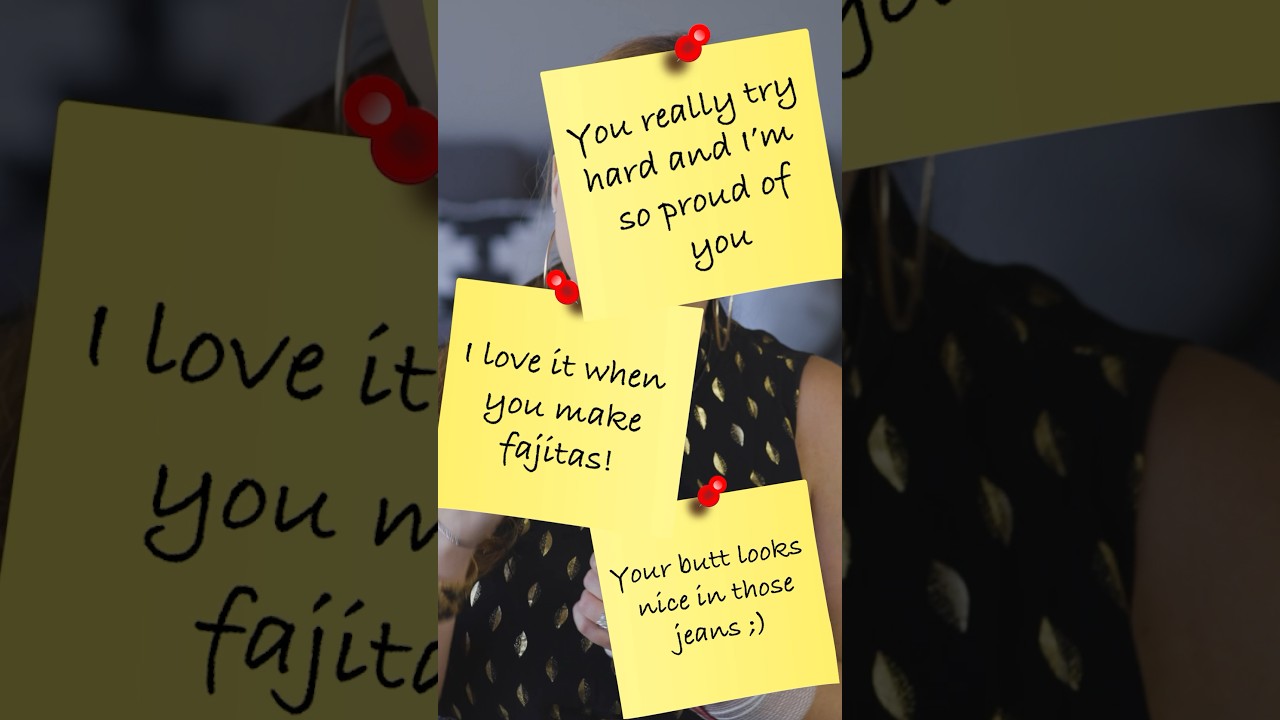 You really try
hard and I'm
so proud of
you
I love it when
you make
fajitas!
Your butt looks
nice in those
jeans ;)